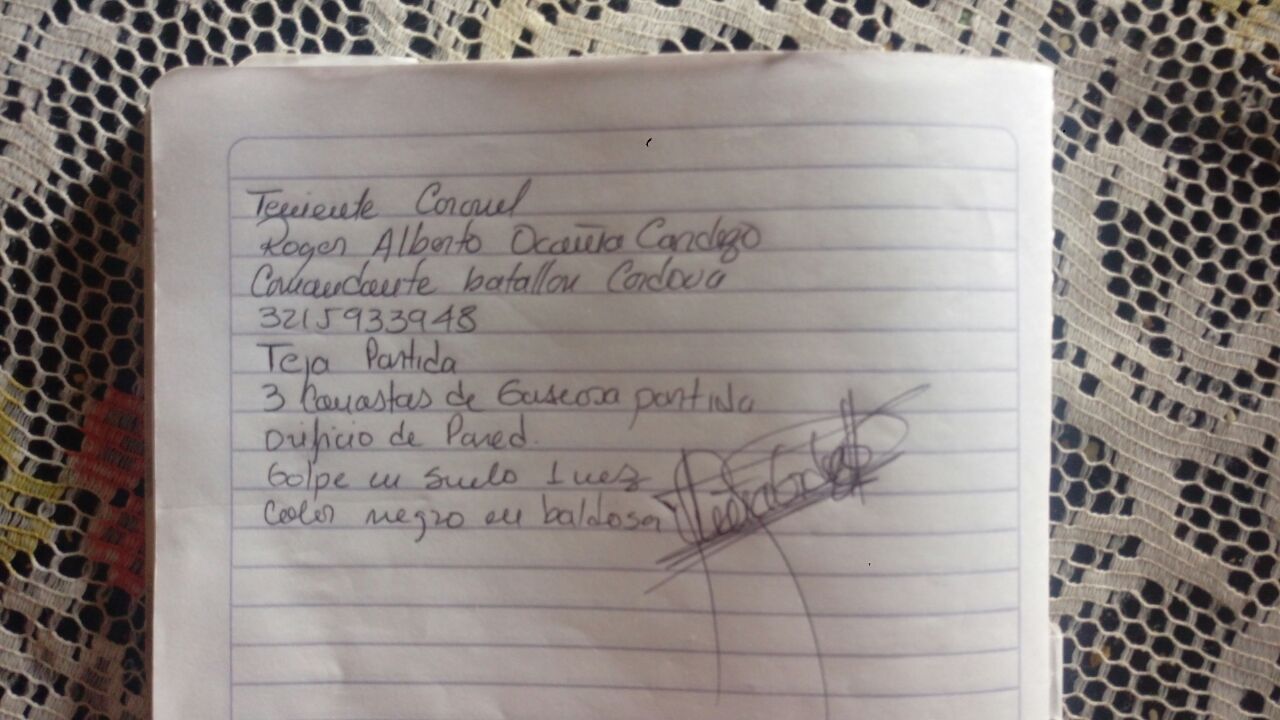 Teniente Coronel
Roger Alberto Ocaña Candego
Comandante batallon Cordova
3215933948
Teja Partida
3 Canastas de Gaseosa partida
Orificio de Pared.
Golpe en suelo 1 vez
Color negro en baldosa